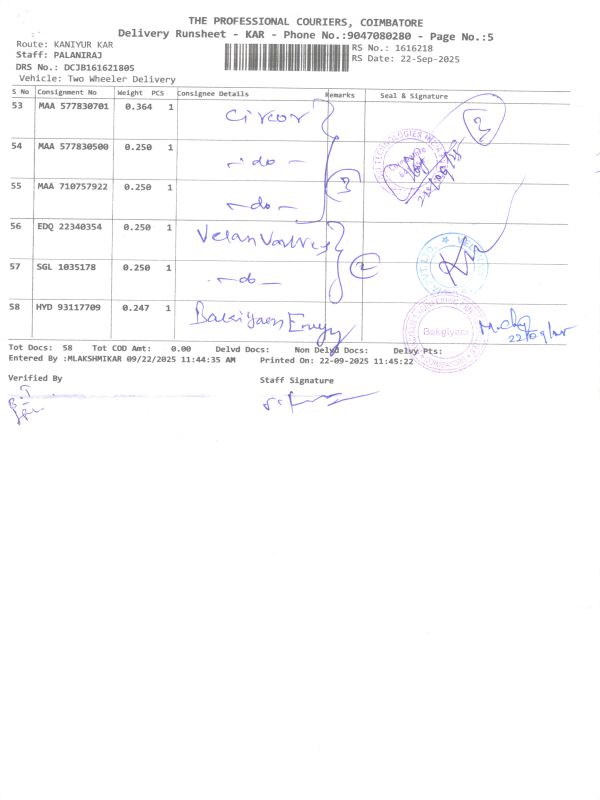 THE PROFESSIONAL COURIERS, COIMBATORE
Delivery Runsheet - KAR - Phone No.:9047080280 - Page No.:5
Route: KANIYUR KAR
RS No.: 1616218
Staff: PALANIRAJ
RS Date: 22-Sep-2025
DRS No.: DCJB161621805
Vehicle: Two Wheeler Delivery
S No Consignment No Weight PCS Consignee Details Remarks Seal & Signature
53 MAA 577830701 0.364 1 Circor
54 MAA 577830500 0.250 1 - do -
3
55 MAA 710757922 0.250 1 - do -
56 EDQ 22340354 0.250 1 Velan
2
57 SGL 1035178 0.250 1 - do -
58 HYD 93117709 0.247 1
Bakgiyam
22/09/25
Tot Docs: 58 Tot COD Amt: 0.00 Delvd Docs: Non Delvd Docs: Delvy Pts:
Entered By :MLAKSHMIKAR 09/22/2025 11:44:35 AM Printed On: 22-09-2025 11:45:22
Verified By
Staff Signature